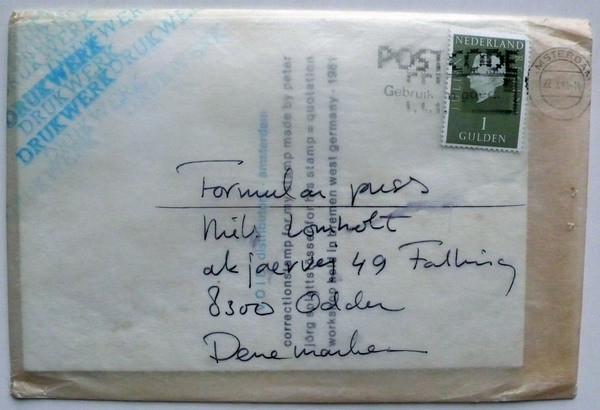 DRUKWERK
DRUKWERK
DRUKWERK
DRUKWERK
DRUKWERK
POSTCODE
Gebruik
NEDERLAND
1
GULDEN
AMSTERDAM
Formular press
Niels Lomholt
49 Falling
8300 Odder
Denemarken
distribution amsterdam
correctionstamp for my stamp made by peter
jörg for his stamp = quotation
workshop held in bremen west germany - 1981